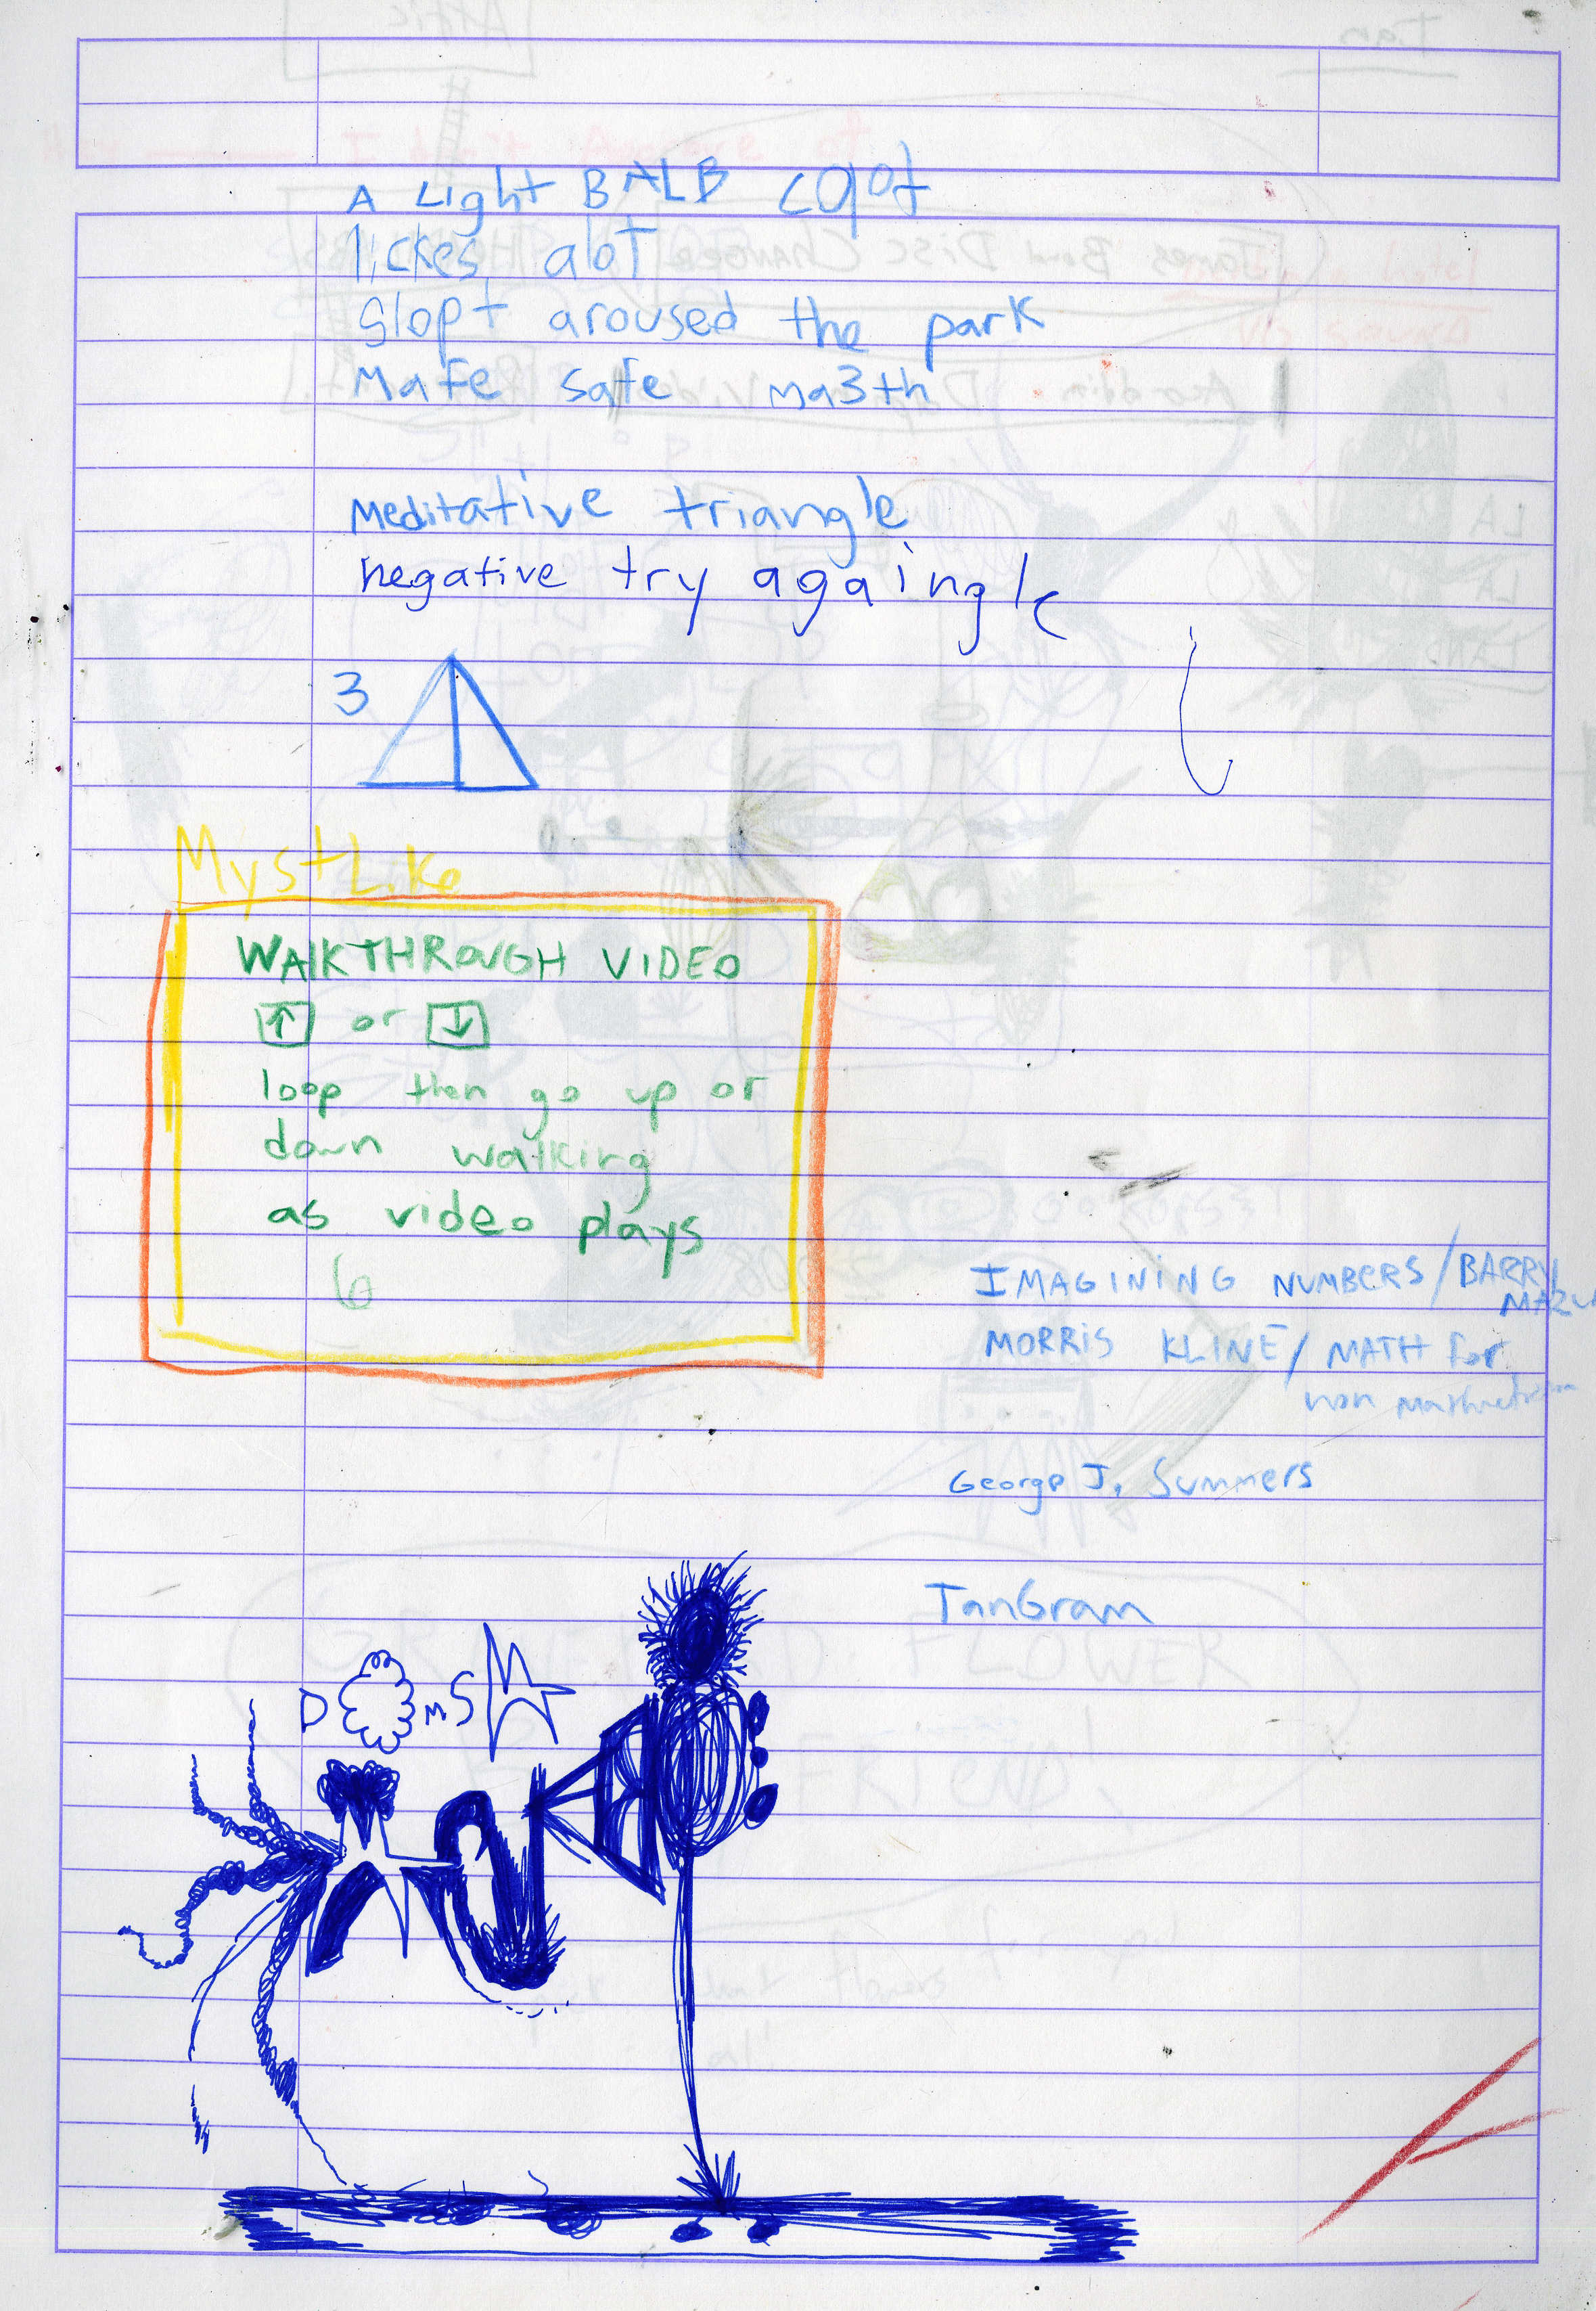 A Light BALB
lickes alot
Slopt aroused the park
Mafe safe ma3th
Meditative triangle
negative try againgle
3
MystLike
WALKTHROUGH VIDEO
↑ or ↓
loop then go up or
down walking
as video plays
6
IMAGINING NUMBERS / BARRY
MAZU
MORRIS KLINE / MATH for
non
George J. Summers
TanGram